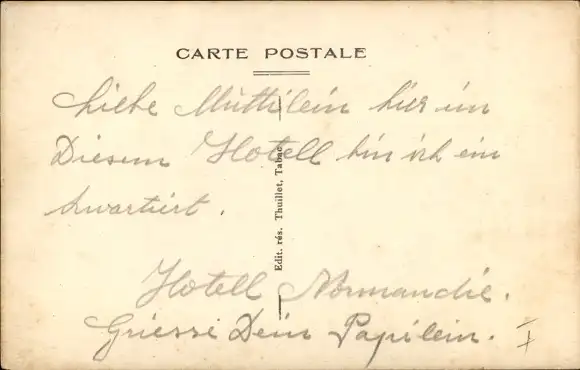 CARTE POSTALE
Liebe Muttilein hier in
Diesem Hotell bin ich ein
kwartiert.
Hotell Normandie.
Griesse Dein Papilein. I
Edit. rés. Thuillet, Tabac